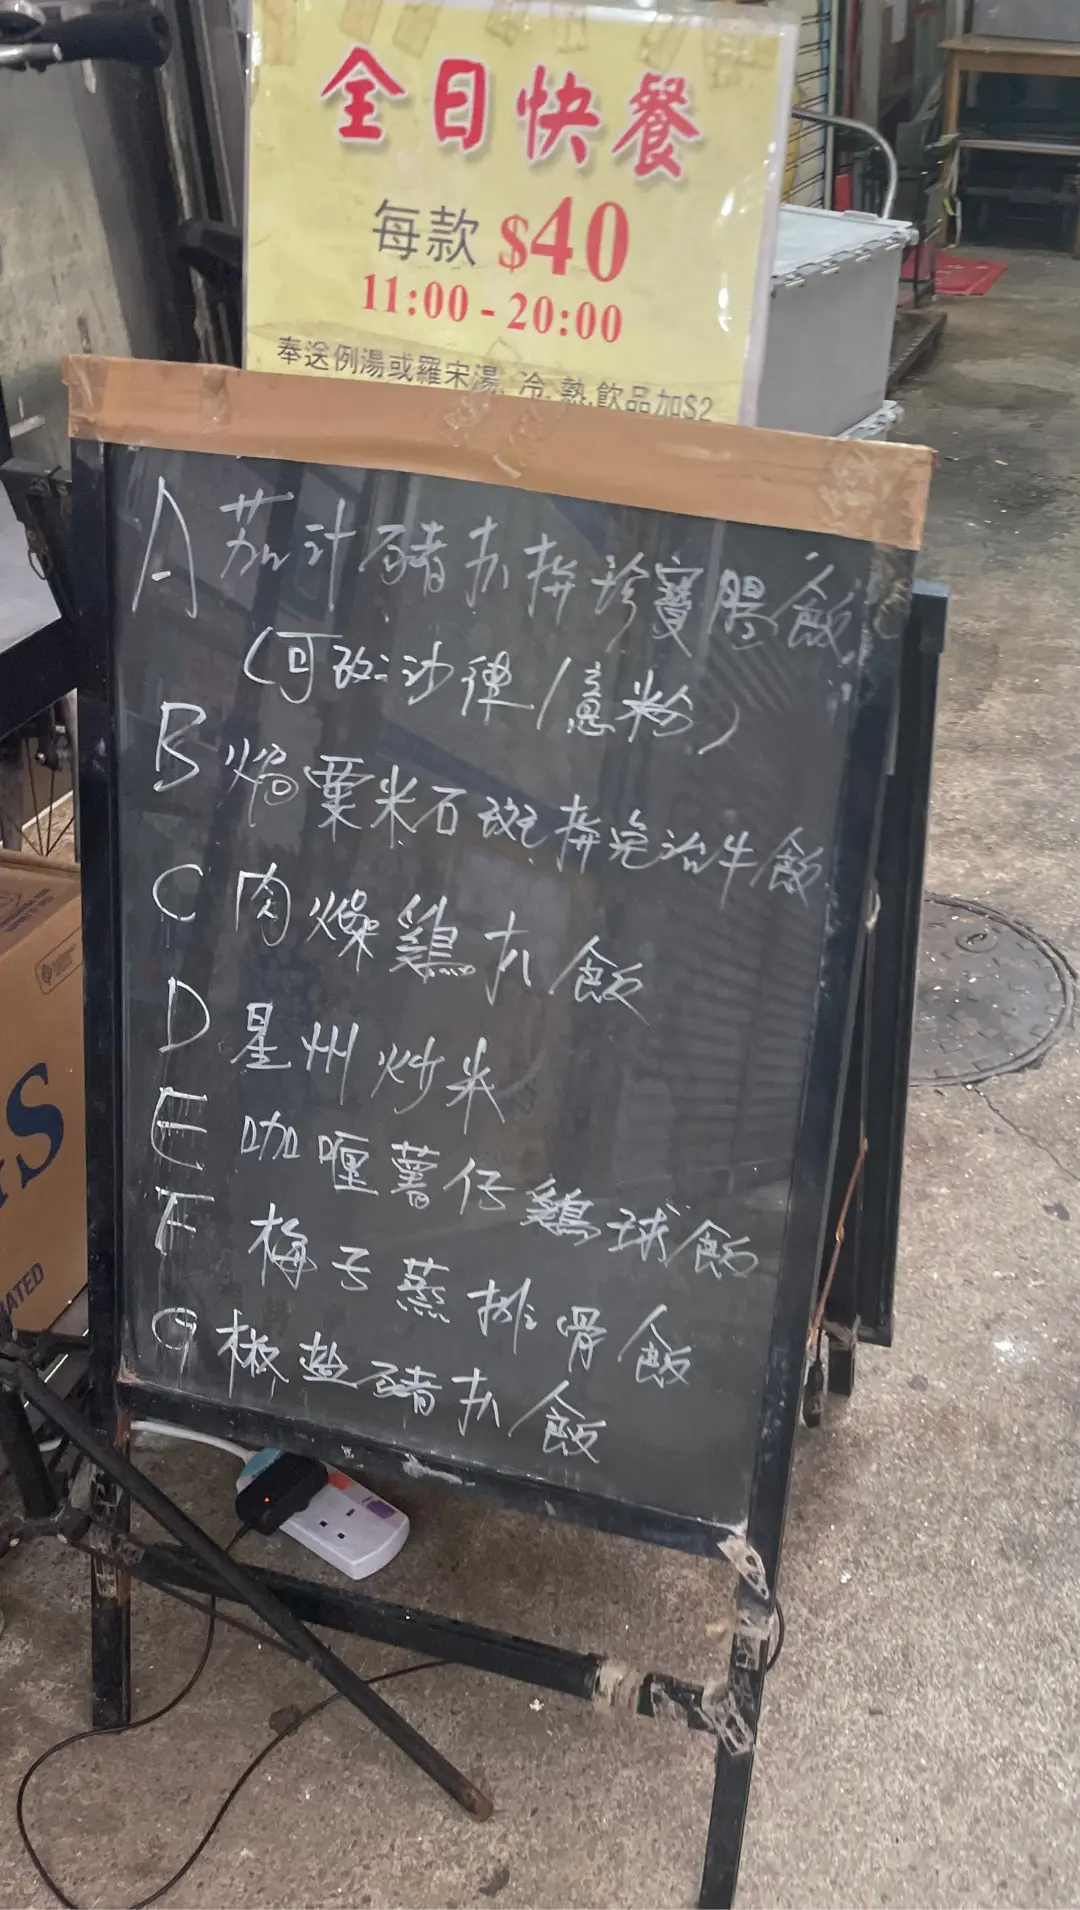 全日快餐
每款 $40
11:00 - 20:00
奉送例湯或羅宋湯, 冷.熱.飲品加$2
A 茄汁豬扒拼珍寶腸飯
(可改:沙律/意粉)
B 焗粟米石斑拼免治牛飯
C 肉燥鷄扒飯
D 星州炒米
E 咖喱薯仔鷄球飯
F 梅子蒸排骨飯
G 椒盐豬扒飯
S
ATED